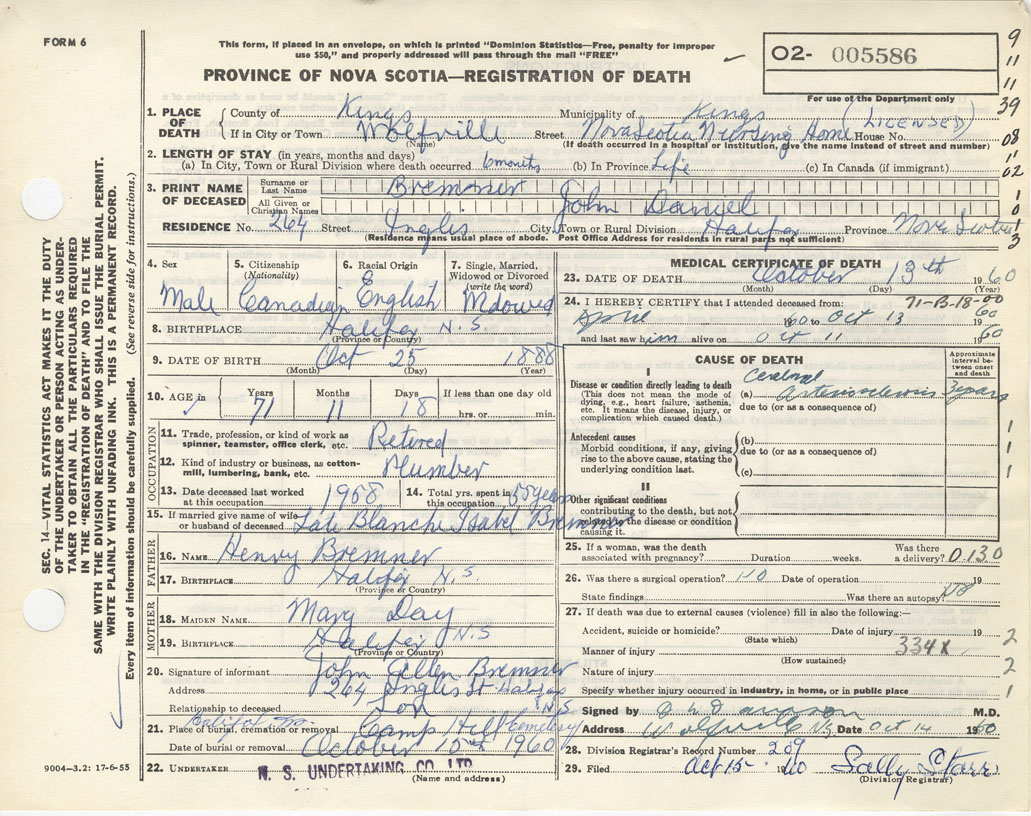 FORM 6
This form, if placed in an envelope, on which is printed "Dominion Statistics—Free, penalty for improper
use $50," and properly addressed will pass through the mail "FREE"
PROVINCE OF NOVA SCOTIA—REGISTRATION OF DEATH
02- 005586
For use of the Department only
9
11
11
39
08
02
1
0
1
3
SEC. 14—VITAL STATISTICS ACT MAKES IT THE DUTY
OF THE UNDERTAKER OR PERSON ACTING AS UNDER-
TAKER TO OBTAIN ALL THE PARTICULARS REQUIRED
IN THE "REGISTRATION OF DEATH" AND TO FILE THE
SAME WITH THE DIVISION REGISTRAR WHO SHALL ISSUE THE BURIAL PERMIT.
WRITE PLAINLY WITH UNFADING INK. THIS IS A PERMANENT RECORD.
Every item of information should be carefully supplied. (See reverse side for instructions.)
1. PLACE OF DEATH County of Kings Municipality of Kings (LICENSED)
If in City or Town Wolfville Street Nova Scotia Nursing Home House No.
(Name) (If death occurred in a hospital or institution, give the name instead of street and number)
2. LENGTH OF STAY (in years, months and days)
(a) In City, Town or Rural Division where death occurred 6 months (b) In Province Life (c) In Canada (if immigrant)
3. PRINT NAME OF DECEASED Surname or Last Name Bremner
All Given or Christian Names John Daniel
RESIDENCE No. 264 Street Inglis City, Town or Rural Division Halifax Province Nova Scotia
(Residence means usual place of abode. Post Office Address for residents in rural parts not sufficient)
4. Sex 5. Citizenship (Nationality) 6. Racial Origin 7. Single, Married, Widowed or Divorced (write the word)
Male Canadian English Widowed
8. BIRTHPLACE Halifax N.S.
(Province or Country)
9. DATE OF BIRTH Oct 25 1888
(Month) (Day) (Year)
10. AGE in Years 71 Months 11 Days 18 If less than one day old hrs. or min.
OCCUPATION
11. Trade, profession, or kind of work as spinner, teamster, office clerk, etc. Retired
12. Kind of industry or business, as cotton-mill, lumbering, bank, etc. Plumber
13. Date deceased last worked at this occupation 1958 14. Total yrs. spent in this occupation 55 years
15. If married give name of wife or husband of deceased Late Blanche Isabel Bremner
FATHER
16. NAME Henry Bremner
17. BIRTHPLACE Halifax N.S.
(Province or Country)
MOTHER
18. MAIDEN NAME Mary Day
19. BIRTHPLACE Halifax N.S
(Province or Country)
20. Signature of informant John Allen Bremner
Address 264 Inglis St Halifax N.S
Relationship to deceased Son
21. Place of burial, cremation or removal Camp Hill Cemetery
Date of burial or removal October 15th 1960
22. UNDERTAKER N. S. UNDERTAKING CO. LTD.
(Name and address)
9004—3.2: 17-6-55
MEDICAL CERTIFICATE OF DEATH
23. DATE OF DEATH October 13th 1960
(Month) (Day) (Year)
24. I HEREBY CERTIFY that I attended deceased from: 71-B-18-00
April 1960 to Oct 13 1960
and last saw him alive on Oct 11 1960
CAUSE OF DEATH
Approximate interval between onset and death
I
Disease or condition directly leading to death
(This does not mean the mode of dying, e.g., heart failure, asthenia, etc. It means the disease, injury, or complication which caused death.)
(a) Cerebral Arteriosclerosis 3 years
due to (or as a consequence of)
Antecedent causes
Morbid conditions, if any, giving rise to the above cause, stating the underlying condition last.
(b)
due to (or as a consequence of)
(c)
1
1
1
II
Other significant conditions
contributing to the death, but not related to the disease or condition causing it.
25. If a woman, was the death associated with pregnancy? Duration weeks. Was there a delivery? 0.130
26. Was there a surgical operation? NO Date of operation 19
State findings Was there an autopsy? No
27. If death was due to external causes (violence) fill in also the following:—
Accident, suicide or homicide? Date of injury 19 2
(State which)
Manner of injury 334X
(How sustained)
Nature of injury 2
Specify whether injury occurred in industry, in home, or in public place 1
Signed by M.D.
Address Wolfville N.S. Date Oct 14 1960
28. Division Registrar's Record Number 209
29. Filed Oct 15 1960 Sally Starr
(Division Registrar)